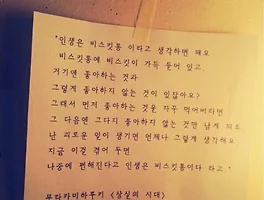 "인생은 비스킷통 이라고 생각하면 돼요
비스킷통에 비스킷이 가득 들어 있고
거기엔 좋아하는 것과
그렇게 좋아하지 않는 것이 있잖아요?
그래서 먼저 좋아하는 것을 자꾸 먹어버리면
그 다음엔 그다지 좋아하지 않는 것만 남게 되죠
난 괴로운 일이 생기면 언제나 그렇게 생각해요
지금 이걸 겪어 두면
나중에 편해진다고 인생은 비스킷통이다 라고."
무라카미하루키 <상실의 시대>